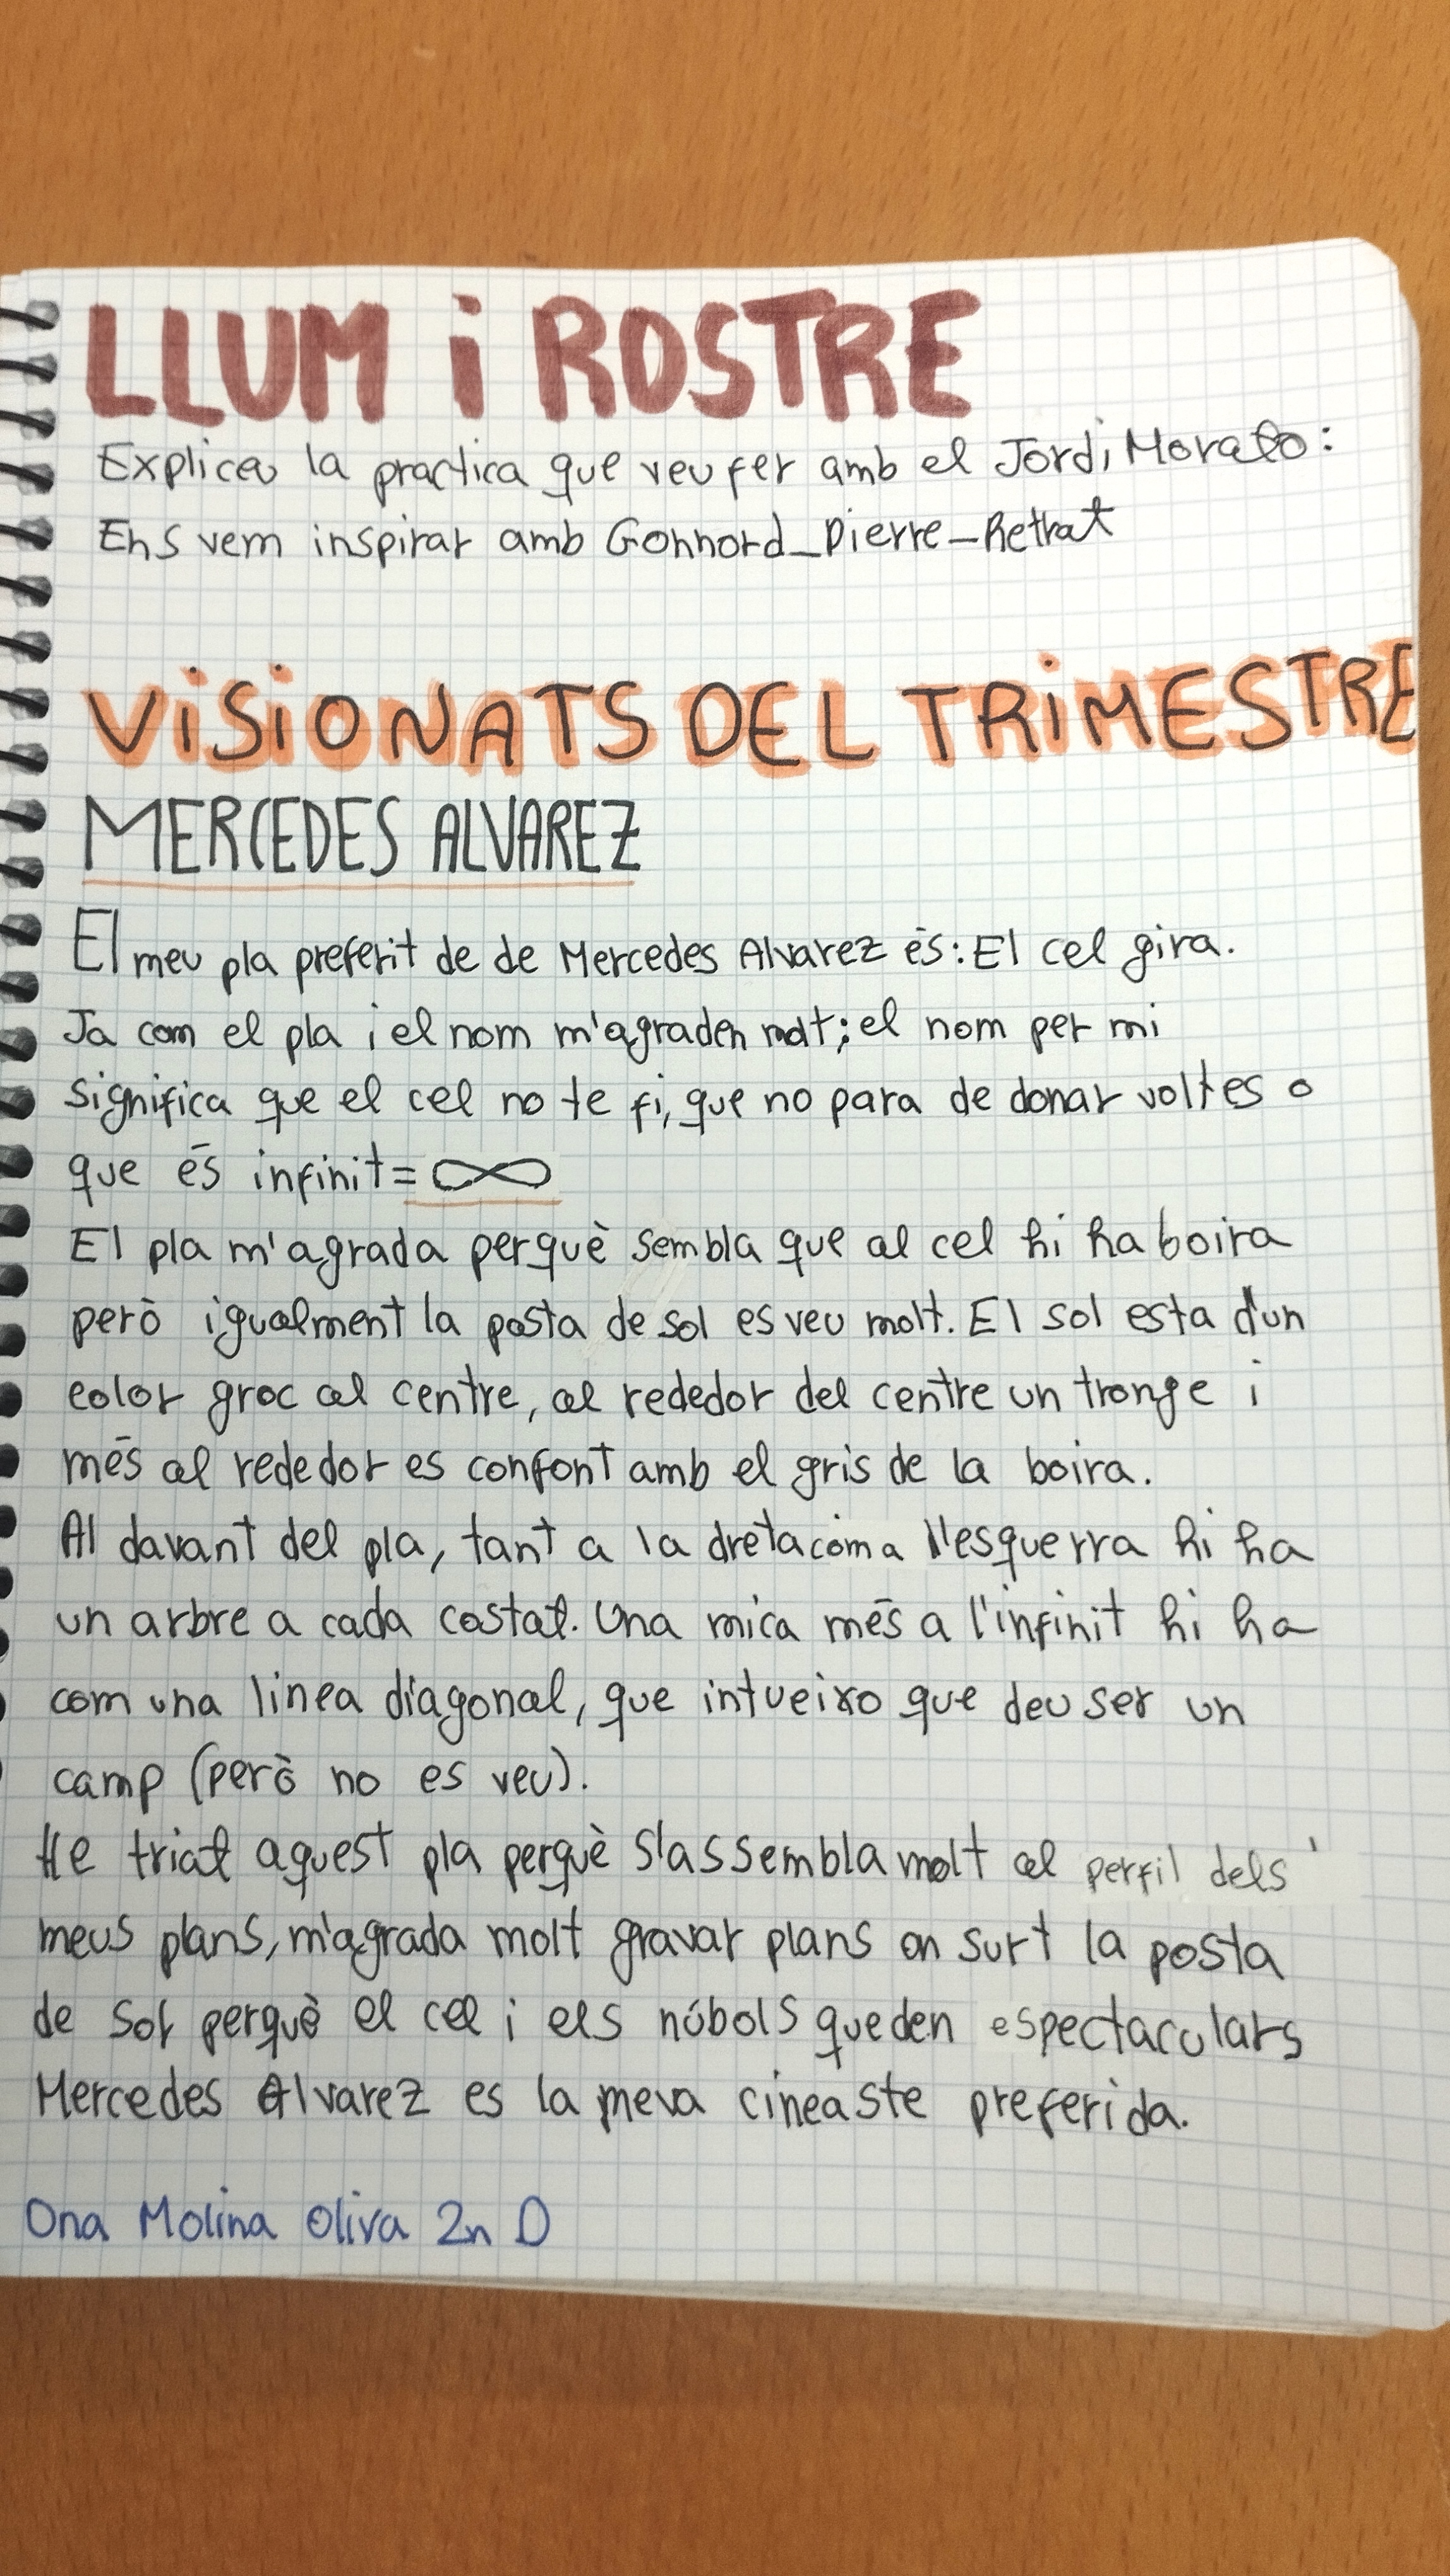 LLUM i ROSTRE
Explica la practica que veu fer amb el Jordi Morato:
Ens vem inspirar amb Gonnord_Pierre_Retrat
VISIONATS DEL TRIMESTRE
MERCEDES ALVAREZ
El meu pla preferit de de Mercedes Alvarez és: El cel gira.
Ja com el pla i el nom m'agraden molt; el nom per mi
significa que el cel no te fi, que no para de donar voltes o
que és infinit = ∞
El pla m'agrada perquè sembla que al cel hi ha boira
però igualment la posta de sol es veu molt. El sol esta d'un
color groc al centre, al rededor del centre un tronge i
més al rededor es confont amb el gris de la boira.
Al davant del pla, tant a la dreta coma l'esquerra hi ha
un arbre a cada costat. Una mica més a l'infinit hi ha
com una linea diagonal, que intueixo que deu ser un
camp (però no es veu).
He triat aquest pla perquè s'assembla molt al perfil dels
meus plans, m'agrada molt gravar plans on surt la posta
de sol perquè el cel i els núbols queden espectaculars
Mercedes Alvarez es la meva cineaste preferida.
Ona Molina Oliva 2n D